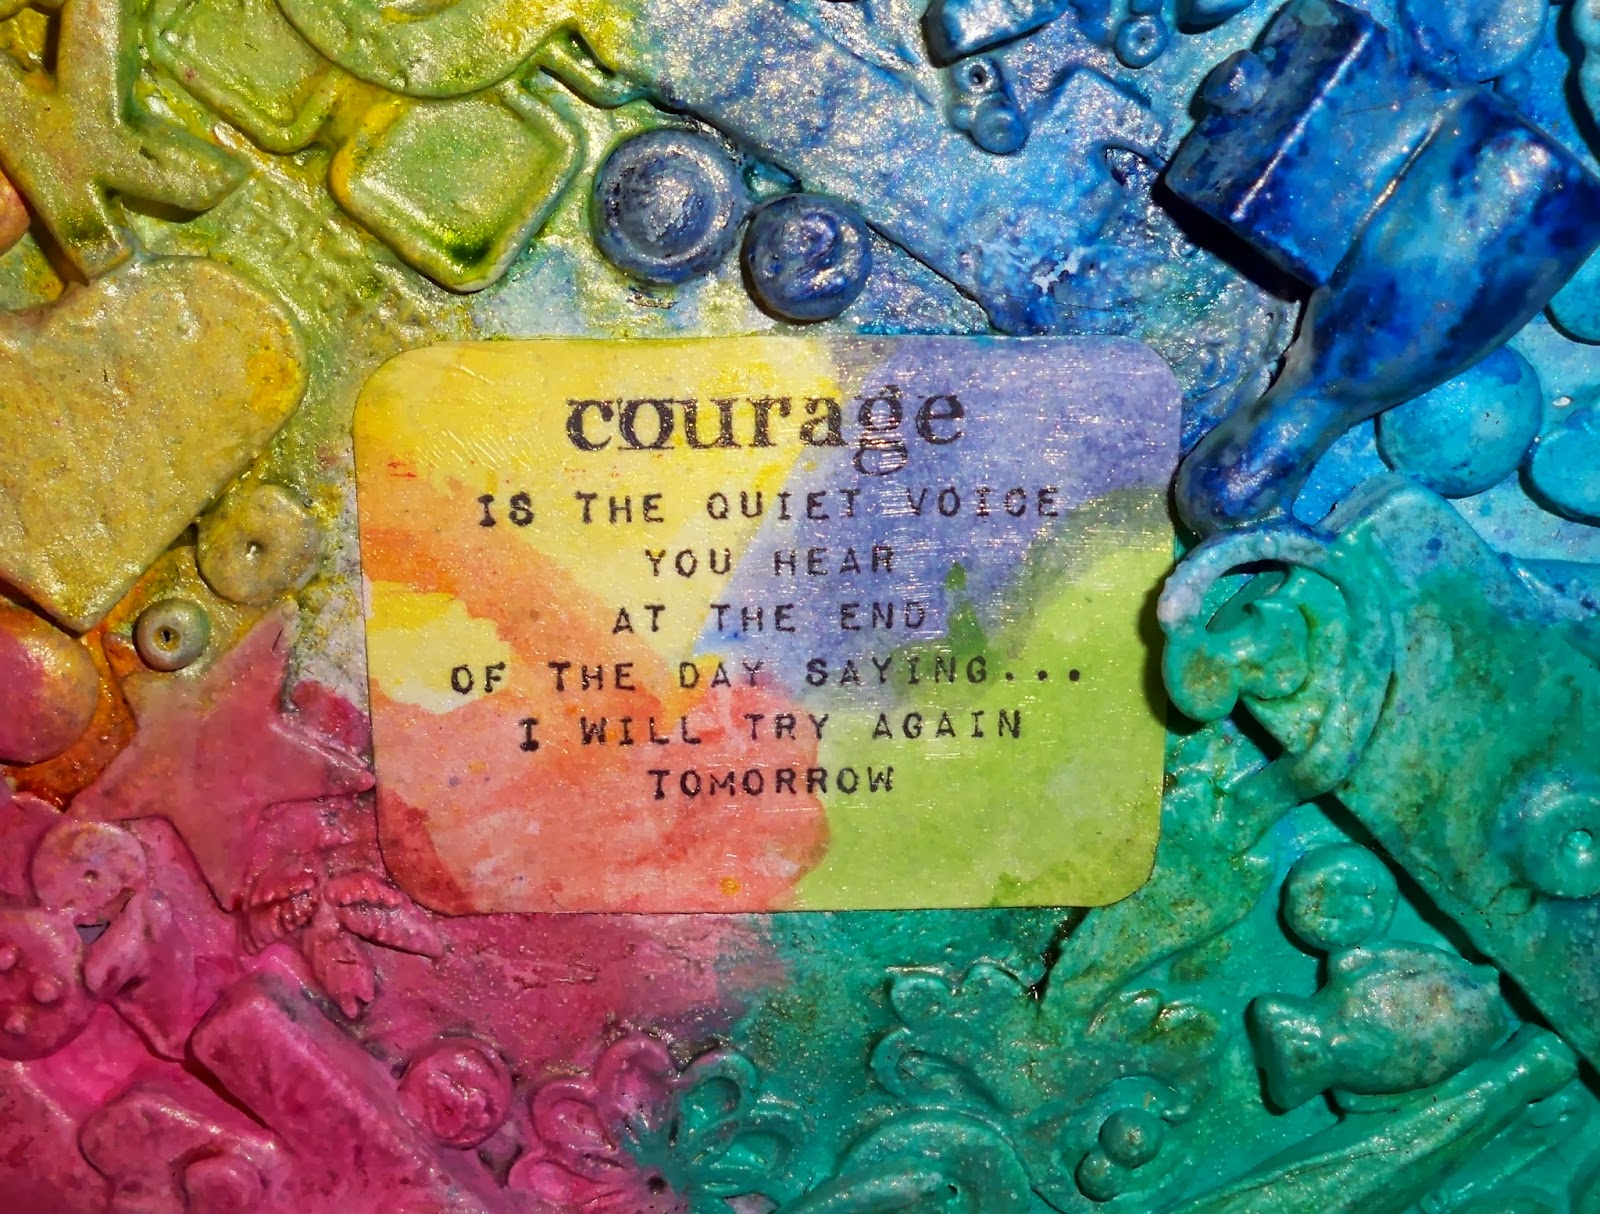 courage
IS THE QUIET VOICE
YOU HEAR
AT THE END
OF THE DAY SAYING...
I WILL TRY AGAIN
TOMORROW